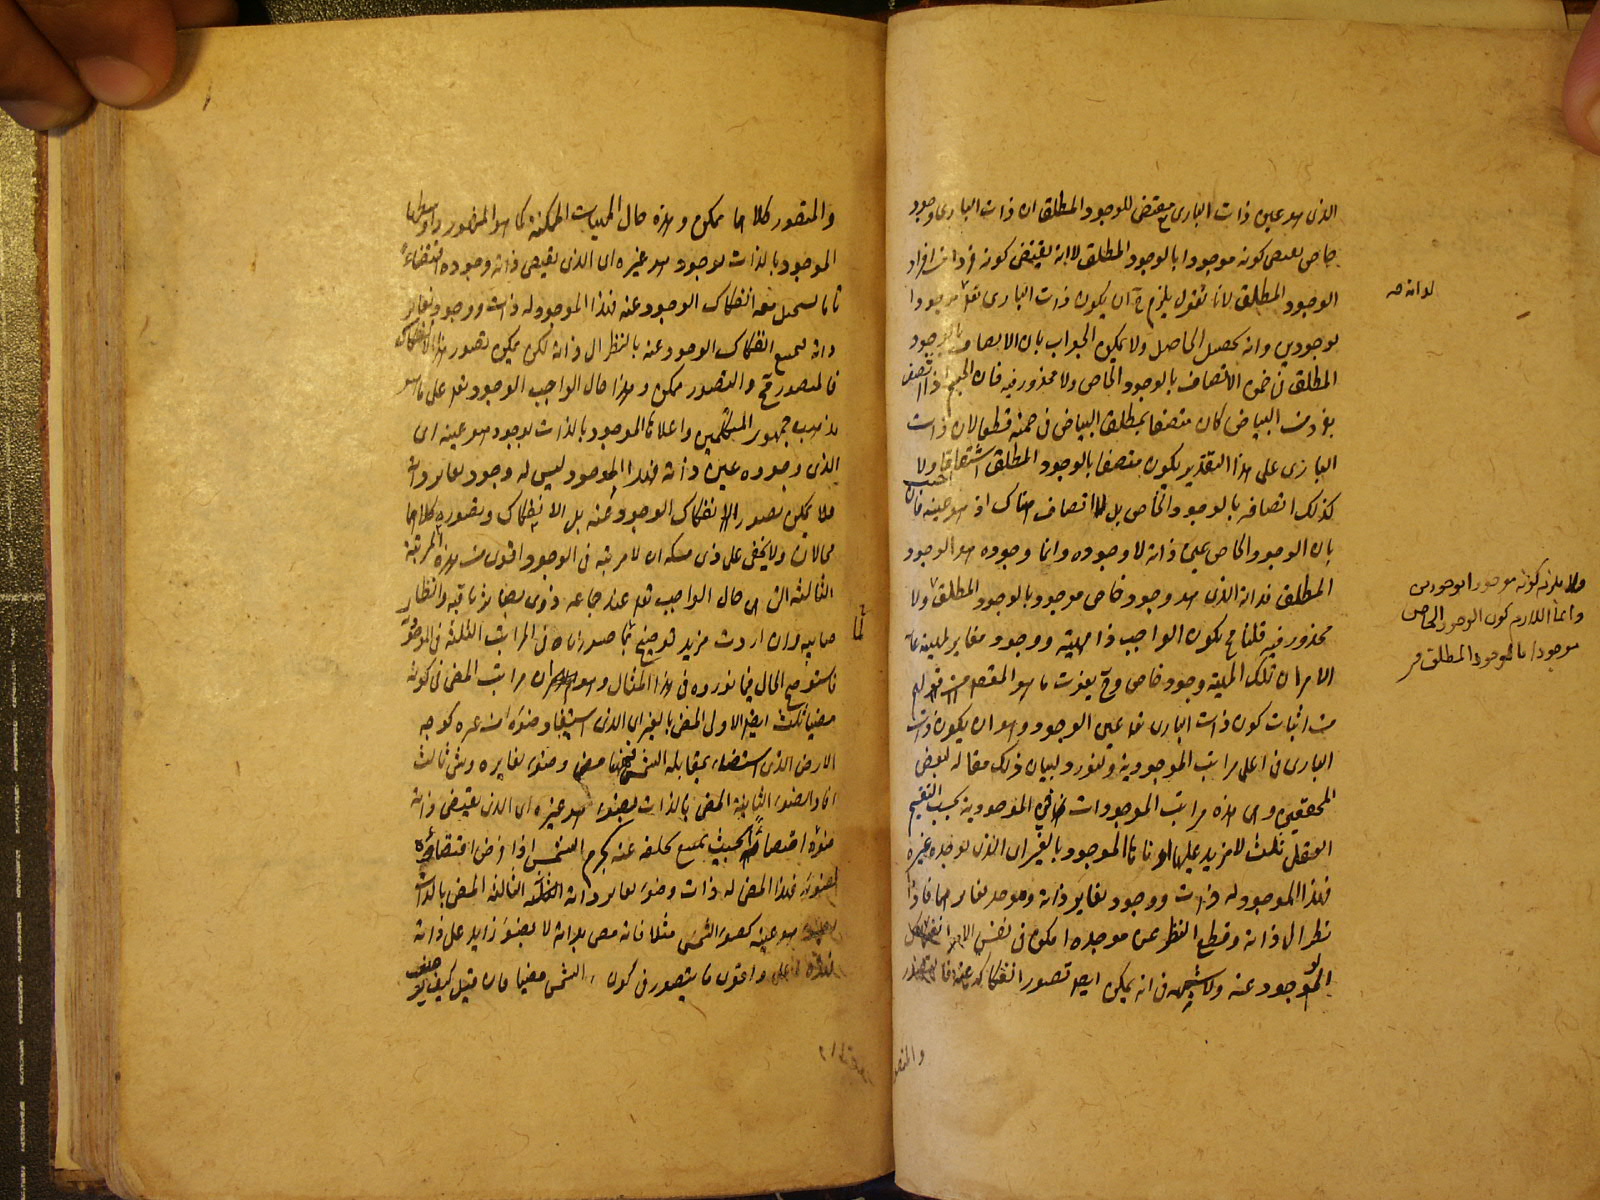 الذى هو عين ذات البارى مقتض للوجود المطلق ان ذات البارى وجود
خاص يقتضى كونه موجودا بالوجود المطلق لا انه يقتضى كونه فردا من افراد
الوجود المطلق لانا نقول يلزم ح ان يكون ذات البارى تعالى موجودا
بوجودين وانه تحصيل الحاصل ولا يمكن الجواب بان الاتصاف بالوجود
المطلق فى ضمن الاتصاف بالوجود الخاص ولا محذور فيه فان الجسم اذا اتصف
بفرد من البياض كان متصفا بمطلق البياض فى ضمنه قطعا لان ذات
البارى على هذا التقدير يكون متصفا بالوجود المطلق اشتقاقا ولا
كذلك اتصافه بالوجود الخاص بل لا اتصاف هناك اذ هو عينه فان اجيب
بان الوجود الخاص عين ذاته لا وجوده وانما وجوده هو الوجود
المطلق فذاته الذى هو وجود خاص موجود بالوجود المطلق ولا
محذور فيه قلنا فح يكون الواجب ذا مهية ووجود مغاير لمهيته غاية
الامر ان تلك المهية وجود خاص وح يفوت ما هو المقصد من قولهم
من اثبات كون ذات البارى تعالى عين الوجود وهو ان يكون ذات
البارى فى اعلى مراتب الموجودية ولنورد لبيان ذلك مقالة لبعض
المحققين وهى هذه مراتب الموجودات فى الموجودية بحسب التقسيم
العقلى ثلث لا مزيد عليها ادناها الموجود بالغير اى الذى يوجده غيره
فهذا الموجود له ذات ووجود يغاير ذاته وموجد يغايرهما فاذا
نظر الى ذاته وقطع النظر عن موجده امكن فى نفس الامر انفكاك
الوجود عنه ولا شبهة فى انه يمكن ايضا تصور انفكاكه عنه فالتصور
والمتصور
لذاته صح
ولا يلزم كونه موجودا بوجودين
وانما اللازم كون الوجود الخاص
موجودا بالوجود المطلق
والمتصور كلاهما ممكن وهذه حال المهيات الممكنة كما هو المشهور واوسطها
الموجود بالذات بوجود هو غيره اى الذى يقتضى ذاته وجوده اقتضاء
تاما يستحيل معه انفكاك الوجود عنه فهذا الموجود له ذات ووجود يغاير
ذاته فيمتنع انفكاك الوجود عنه بالنظر الى ذاته لكن يمكن تصور هذا الانفكاك
فالمتصور مح والتصور ممكن وهذا حال الواجب الوجود تعالى على ما هو
مذهب جمهور المتكلمين واعلاها الموجود بالذات بوجود هو عينه اى
الذى وجوده عين ذاته فهذا الموجود ليس له وجود يغاير ذاته
فلا يمكن تصور انفكاك الوجود عنه بل الانفكاك وتصوره كلاهما
محالان ولا يخفى على ذى مسكة ان لا مرتبة فى الوجود اقوى من هذه المرتبة
الثالثة التى هى حال الواجب تعالى عند جماعة ذوى بصائر ثاقبة وانظار
صايبة وان اردت مزيد توضيح لما صورناه فى المراتب الثلثة فى الموجود
فاستوضح الحال فيما نورده فى هذا المثال وهو ان مراتب المضئ فى كونه
مضيئا ثلث ايضا الاولى المضئ بالغير اى الذى استفاد ضوءه من غيره كوجه
الارض الذى استضاء بمقابلة الشمس فههنا مضئ وضوء يغايره وشئ ثالث
افاد الضوء الثانية المضئ بالذات بضوء هو غيره اى الذى يقتضى ذاته
ضوءه اقتضاء بحيث يمتنع تخلفه عنه كجرم الشمس اذا فرض اقتضائه
لضوئه فهذا المضئ له ذات وضوء يغاير ذاته الثالثة المضئ بالذات
هو عينه كضوء الشمس مثلا فانه مضئ بذاته لا بضوء زايد على ذاته
واقوى ما يتصور فى كون الشئ مضيئا فان قيل كيف يوصف